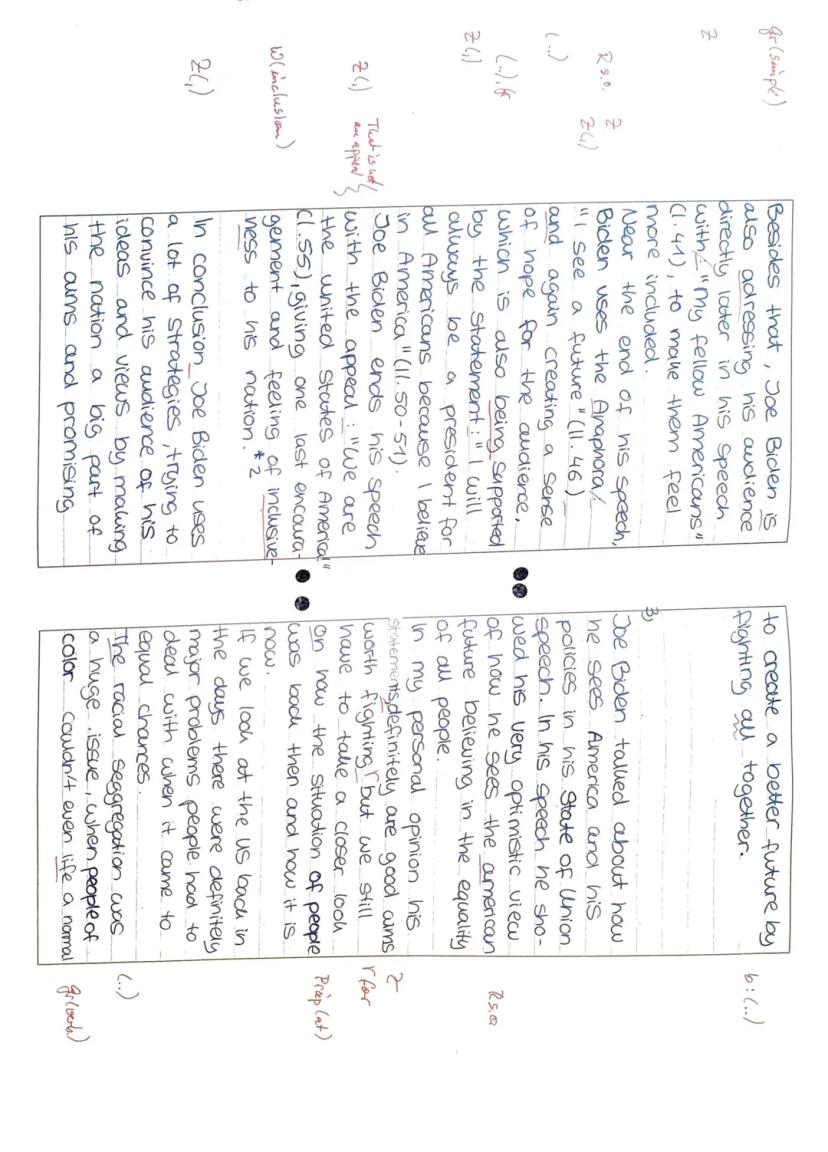 Besides that, Joe Biden is
also adressing his audience
directly later in his speech
with "My fellow Americans"
(l. 41), to make them feel
more included.
Near the end of his speech,
Biden uses the Anaphora
"I see a future" (ll. 46)
and again creating a sense
of hope for the audience,
which is also being supported
by the statement: "I will
always be a president for
all Americans because I believe
in America" (ll. 50-51).
Joe Biden ends his speech
with the appeal: "We are
the united states of America"
(l. 55), giving one last encoura-
gement and feeling of inclusive-
ness to his nation. *2
In conclusion Joe Biden uses
a lot of strategies, trying to
convince his audience of his
ideas and views by making
the nation a big part of
his aims and promising
gr (simple)
Z
R s.o. Z
Z(,)
(..)
(..), gr
Z(,)
Z(,) That is not
an appeal
W (inclusion)
Z(,)
to create a better future by
fighting all together.
3)
Joe Biden talked about how
he sees America and his
policies in his State of Union
speech. In his speech he sho-
wed his very optimistic view
of how he sees the american
future believing in the equality
of all people.
In my personal opinion his
statements definitely are good aims
worth fighting but we still
have to take a closer look
on how the situation of people
was back then and how it is
now.
If we look at the US back in
the days there were definitely
major problems people had to
deal with when it came to
equal chances.
The racial seggregation was
a huge issue, when people of
color couldn't even life a normal
b: (..)
Z
r for
Präp (at)
(..)
gr (verb.)